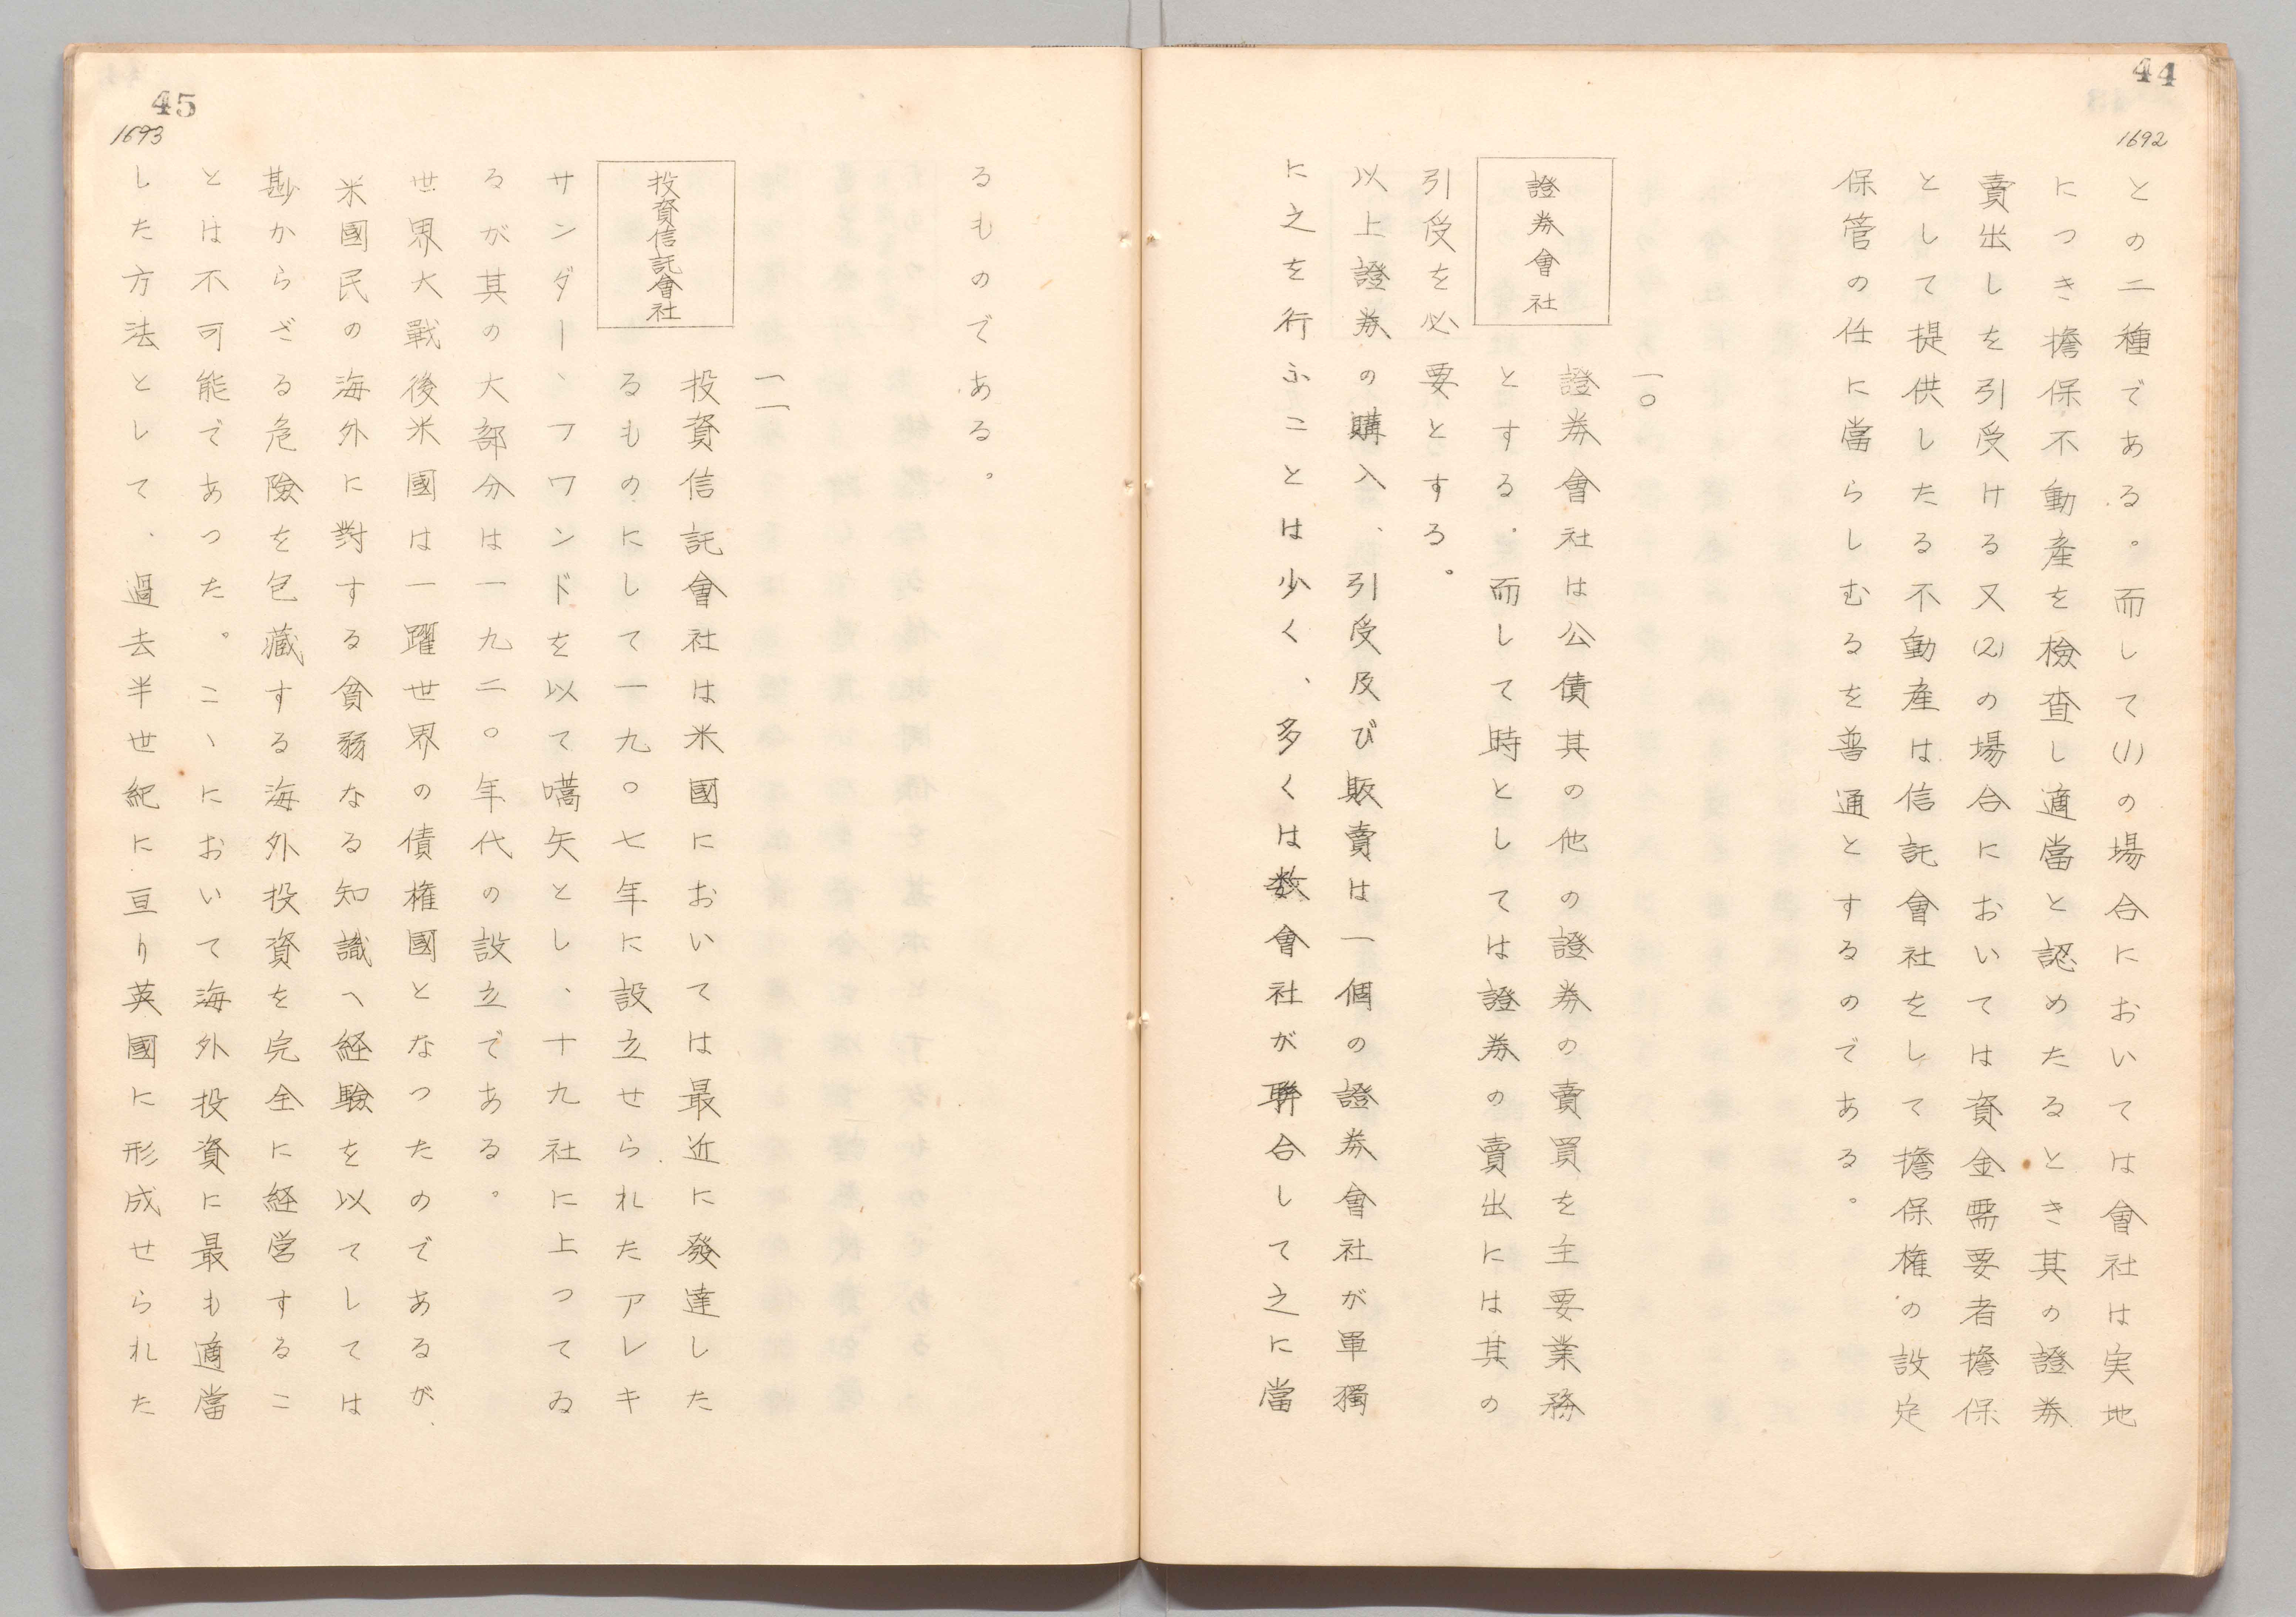 44
1692
との二種である。而して(1)の場合においては會社は実地
につき擔保不動産を檢査し適當と認めたるとき其の證券
賣出しを引受ける又(2)の場合においては資金需要者擔保
として提供したる不動産は信託會社をして擔保権の設定
保管の任に當らしむるを普通とするのである。
一〇
證券會社
證券會社は公債其の他の證券の賣買を主要業務
とする。而して時としては證券の賣出には其の
引受を必要とする。
以上證券の購入、引受及び販賣は一個の證券會社が單獨
に之を行ふことは少く、多くは数會社が聯合して之に當
45
1693
るものである。
一一
投資信託會社
投資信託會社は米國においては最近に發達した
るものにして一九〇七年に設立せられたアレキ
サンダー、フワンドを以て嚆矢とし、十九社に上つてゐ
るが其の大部分は一九二〇年代の設立である。
世界大戰後米國は一躍世界の債権國となつたのであるが、
米國民の海外に對する貧弱なる知識へ経験を以てしては
尠からざる危險を包藏する海外投資を完全に経営するこ
とは不可能であつた。こゝにおいて海外投資に最も適當
した方法として、過去半世紀に亘り英國に形成せられた